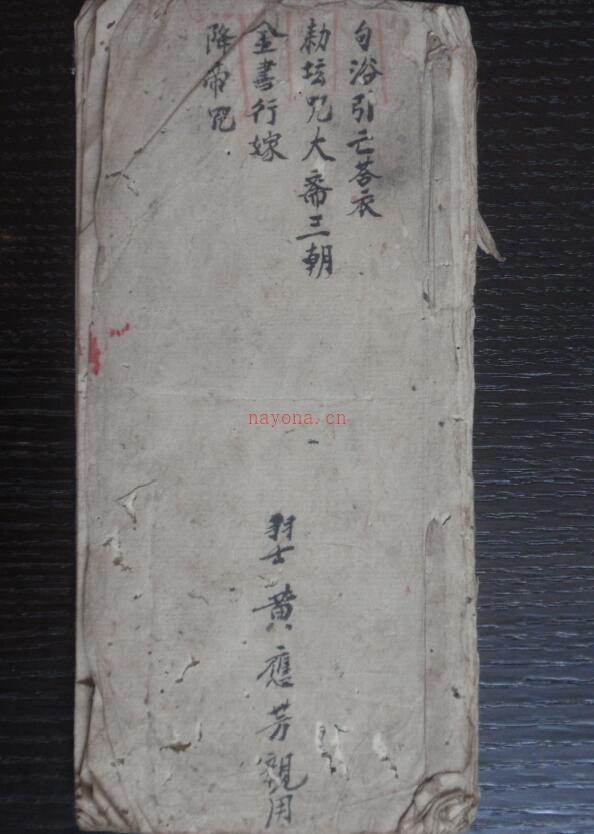 勾浴引亡荅衣
勅坛咒大斋三朝
金書行嫁
降帝咒
nayona.cn
黄應芳親用